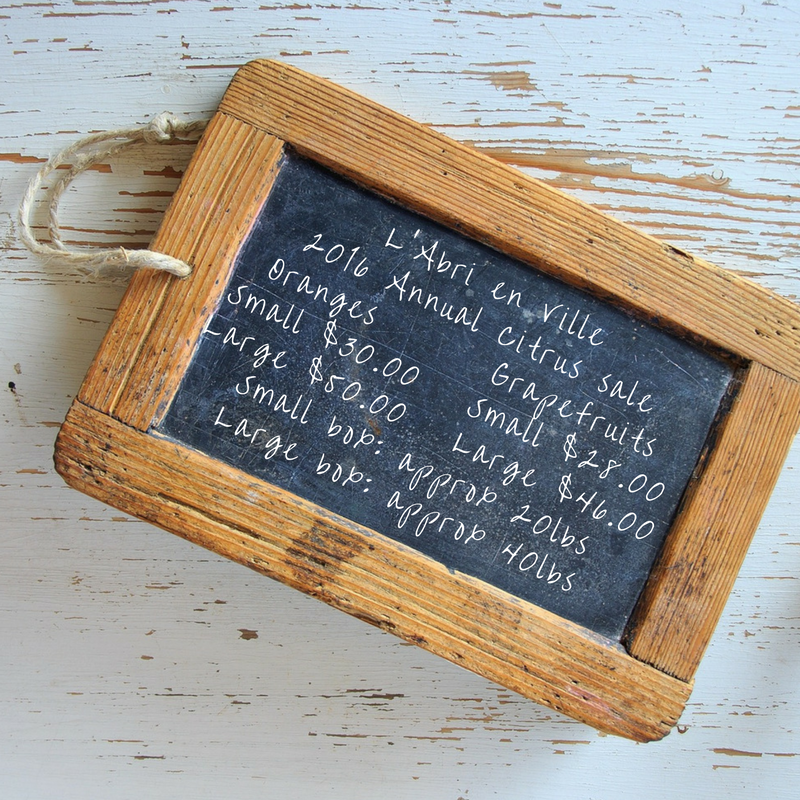 L'Abri en Ville
2016 Annual Citrus sale
Oranges Grapefruits
Small $30.00 Small $28.00
Large $50.00 Large $46.00
Small box: approx 20lbs
Large box: approx 40lbs